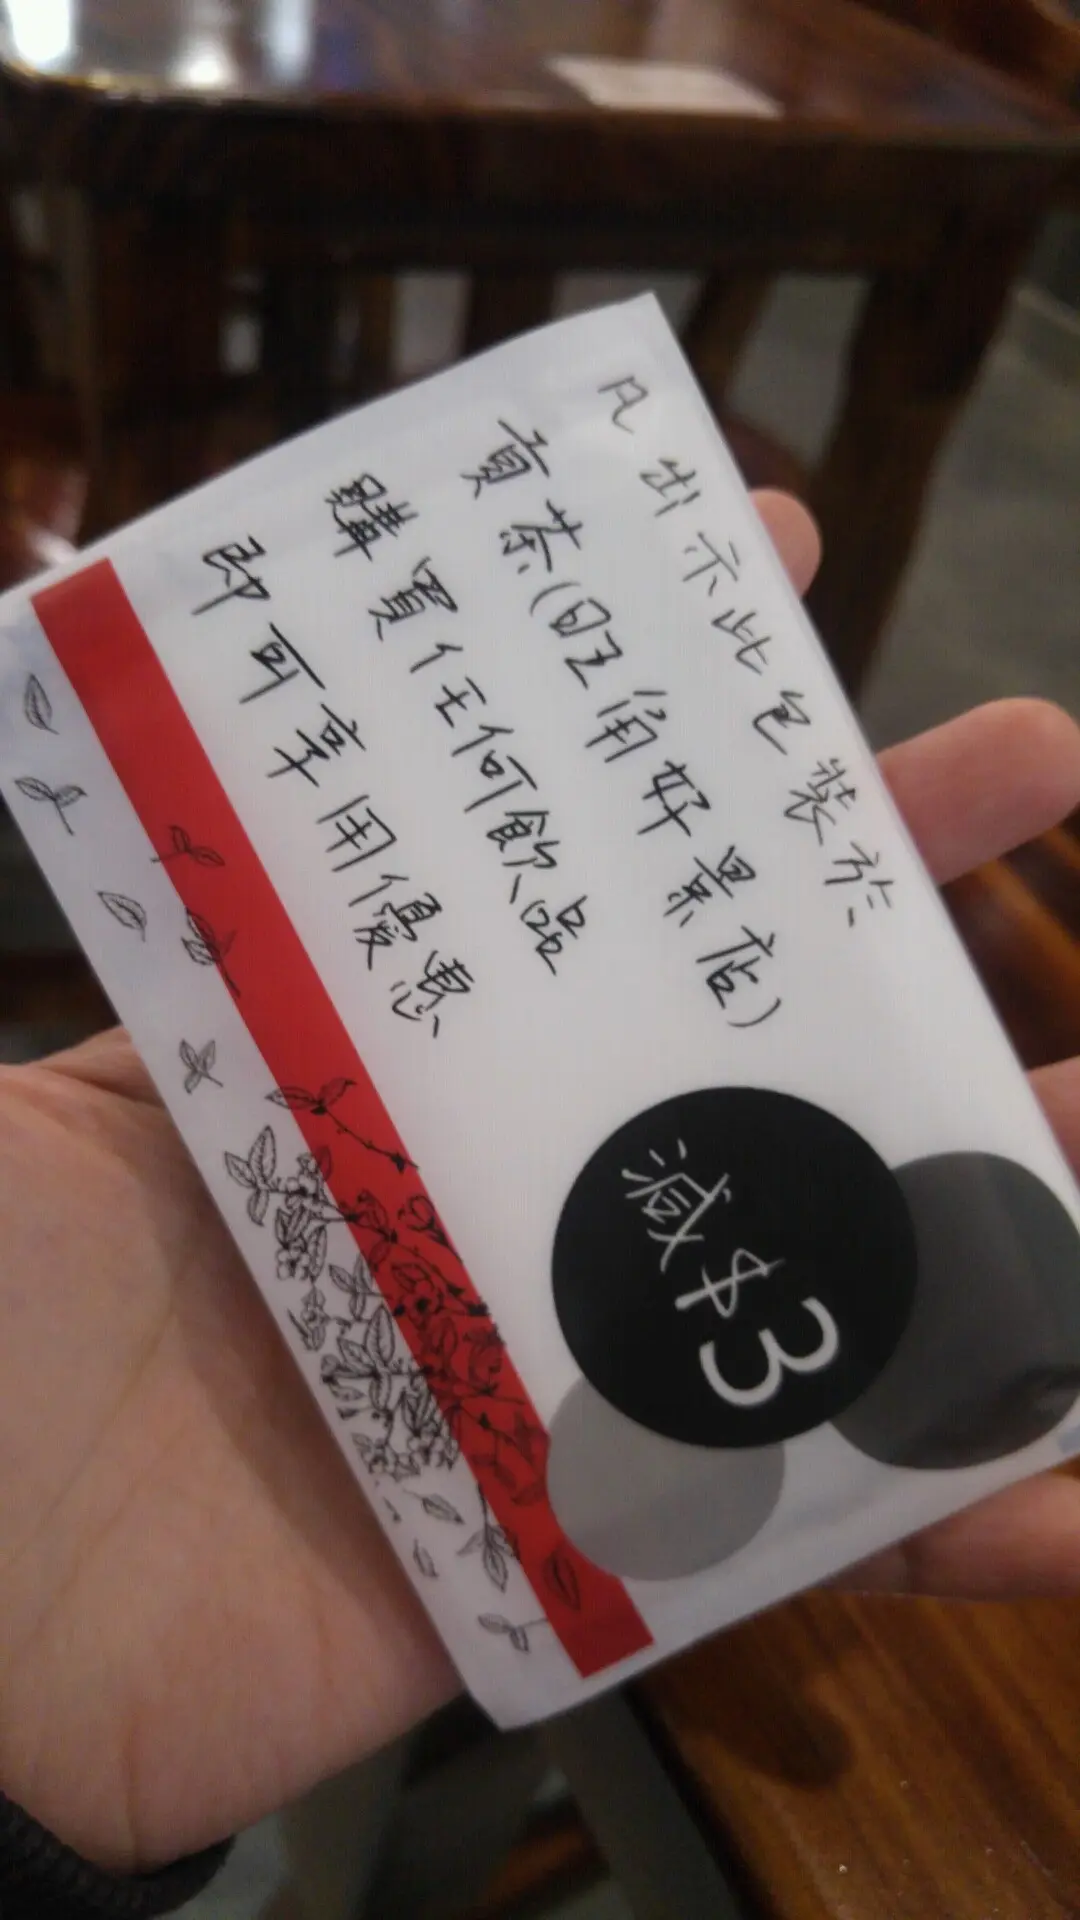 凡出示此包裝於
貢茶(旺角好景店)
購買任何飲品
即可享用優惠
減$3